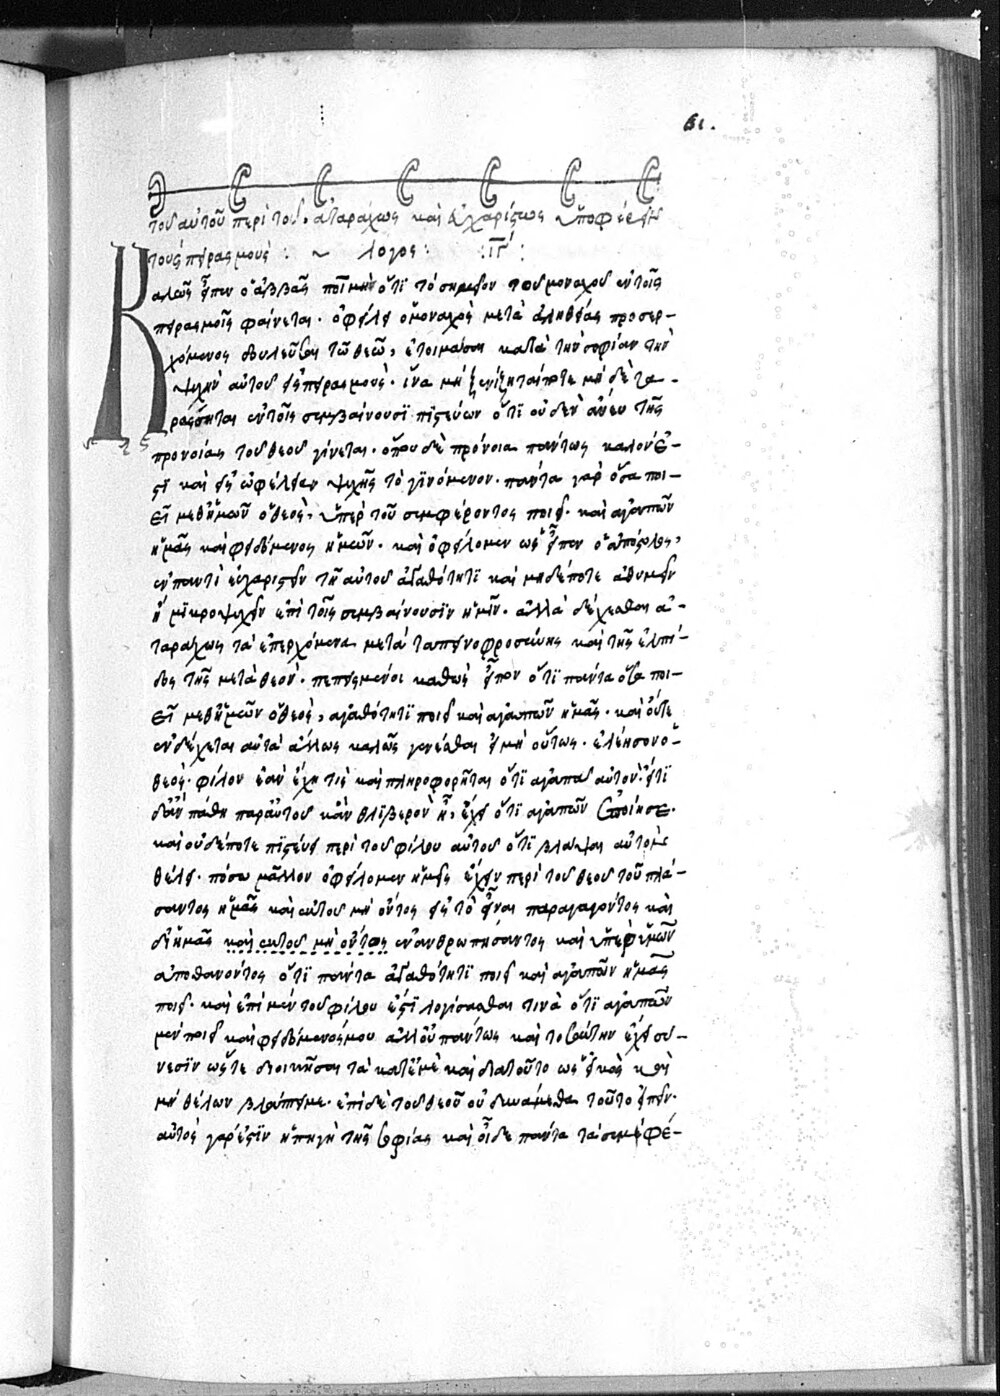 61.
τοῦ αὐτοῦ περὶ τοῦ, ἀταράχως καὶ εὐχαρίστως ὑποφέρειν
τοὺς πειρασμούς : ~ λόγος : ιγ´ :
Καλῶς εἶπεν ὁ ἀββᾶς ποιμὴν ὅτι τὸ σημεῖον τοῦ μοναχοῦ ἐν τοῖς
πειρασμοῖς φαίνεται. ὀφείλει ὁ μοναχὸς μετὰ ἀληθείας προσερ-
χόμενος δουλεῦσαι τῶ θεῶ, ἑτοιμάσαι κατὰ τὴν σοφίαν τὴν
ψυχὴν αὐτοῦ εἰς πειρασμούς. ἵνα μὴ ξενίζηται ποτε μὴ δὲ τα-
ράσσηται ἐν τοῖς συμβαίνουσϊ πιστεύων ὅτι οὐδὲν ἄνευ τῆς
προνοίας τοῦ θεοῦ γίνεται. ὅπου δὲ πρόνοια πάντως καλόν ἐ-
στϊ καὶ εἰς ὠφέλειαν ψυχῆς τὸ γϊνόμενον. πάντα γὰρ ὅσα ποι-
εῖ μεθ' ἡμῶν ὁ θεὸς, ὑπὲρ τοῦ συμφέροντος ποιεῖ. καὶ ἀγαπῶν
ἡμᾶς καὶ φειδόμενος ἡμῶν. καὶ ὀφείλομεν ὡς εἶπεν ὁ ἀπόστολος,
ἐν παντὶ εὐχαριστεῖν τῆ αὐτοῦ ἀγαθότητϊ καὶ μηδέποτε ἀθυμεῖν
ἢ μϊκροψυχεῖν ἐπὶ τοῖς συμβαίνουσϊν ἡμῖν. ἀλλὰ δέχεσθαι ἀ-
ταράχως τὰ ἐπερχόμενα μετὰ ταπεινοφροσύνης καὶ τῆς ἐλπί-
δος τῆς μετὰ θεὸν. πεπεισμένοι καθὼς εἶπον ὅτϊ πάντα ὅσα ποι-
εῖ μεθ' ἡμῶν ὁ θεὸς, ἀγαθότητϊ ποιεῖ καὶ ἀγαπῶν ἡμᾶς. καὶ οὔτε
ἐνδέχεται αὐτὰ ἄλλως καλῶς γενέσθαι εἰ μὴ οὕτως. ἐλεήσον ὁ
θεὸς. φίλον ἐὰν ἔχη τὶς καὶ πληροφορῆται ὅτϊ ἀγαπᾶ αὐτὸν. ὅτϊ
δ' ἂν πάθη παρ' αὐτοῦ κἂν θλϊβερὸν ἦ, ἔχει ὅτϊ ἀγαπῶν ἐποίησε.
καὶ οὐδέποτε πϊστεύει περὶ τοῦ φίλου αὐτοῦ ὅτϊ βλάψαι αὐτὸν
θέλει. πόσω μᾶλλον ὀφείλομεν ἡμεῖς ἔχειν περὶ τοῦ θεοῦ τοῦ πλά-
σαντος ἡμᾶς καὶ ἐκ τοῦ μὴ ὄντος εἰς τὸ εἶναι παραγαγόντος καὶ
δι' ἡμᾶς καὶ ἐκ τοῦ μὴ ὄντος ἐνανθρωπήσαντος καὶ ὑπὲρ ἡμῶν
ἀποθανόντος ὅτϊ πάντα ἀγαθότητϊ ποιεῖ καὶ ἀγαπῶν ἡμᾶς
ποιεῖ. καὶ ἐπὶ μὲν τοῦ φίλου ἐστϊ λογίσασθαι τινὰ ὅτϊ ἀγαπῶν
μὲν ποιεῖ καὶ φειδόμενός μου ἀλλ' οὐ πάντως καὶ τοσαύτην ἔχει σύ-
νεσϊν ὥστε διοικῆσαι τὰ κατ' ἐμὲ καὶ διατοῦτο ὡς εἰκὸς καὶ
μὴ θέλων βλάπτει με. ἐπὶ δὲ τοῦ θεοῦ οὐ δυνάμεθα τοῦτο εἰπεῖν.
αὐτὸς γάρ ἐστϊν ἡ πηγὴ τῆς σοφίας καὶ οἶδε πάντα τὰ συμφέ-